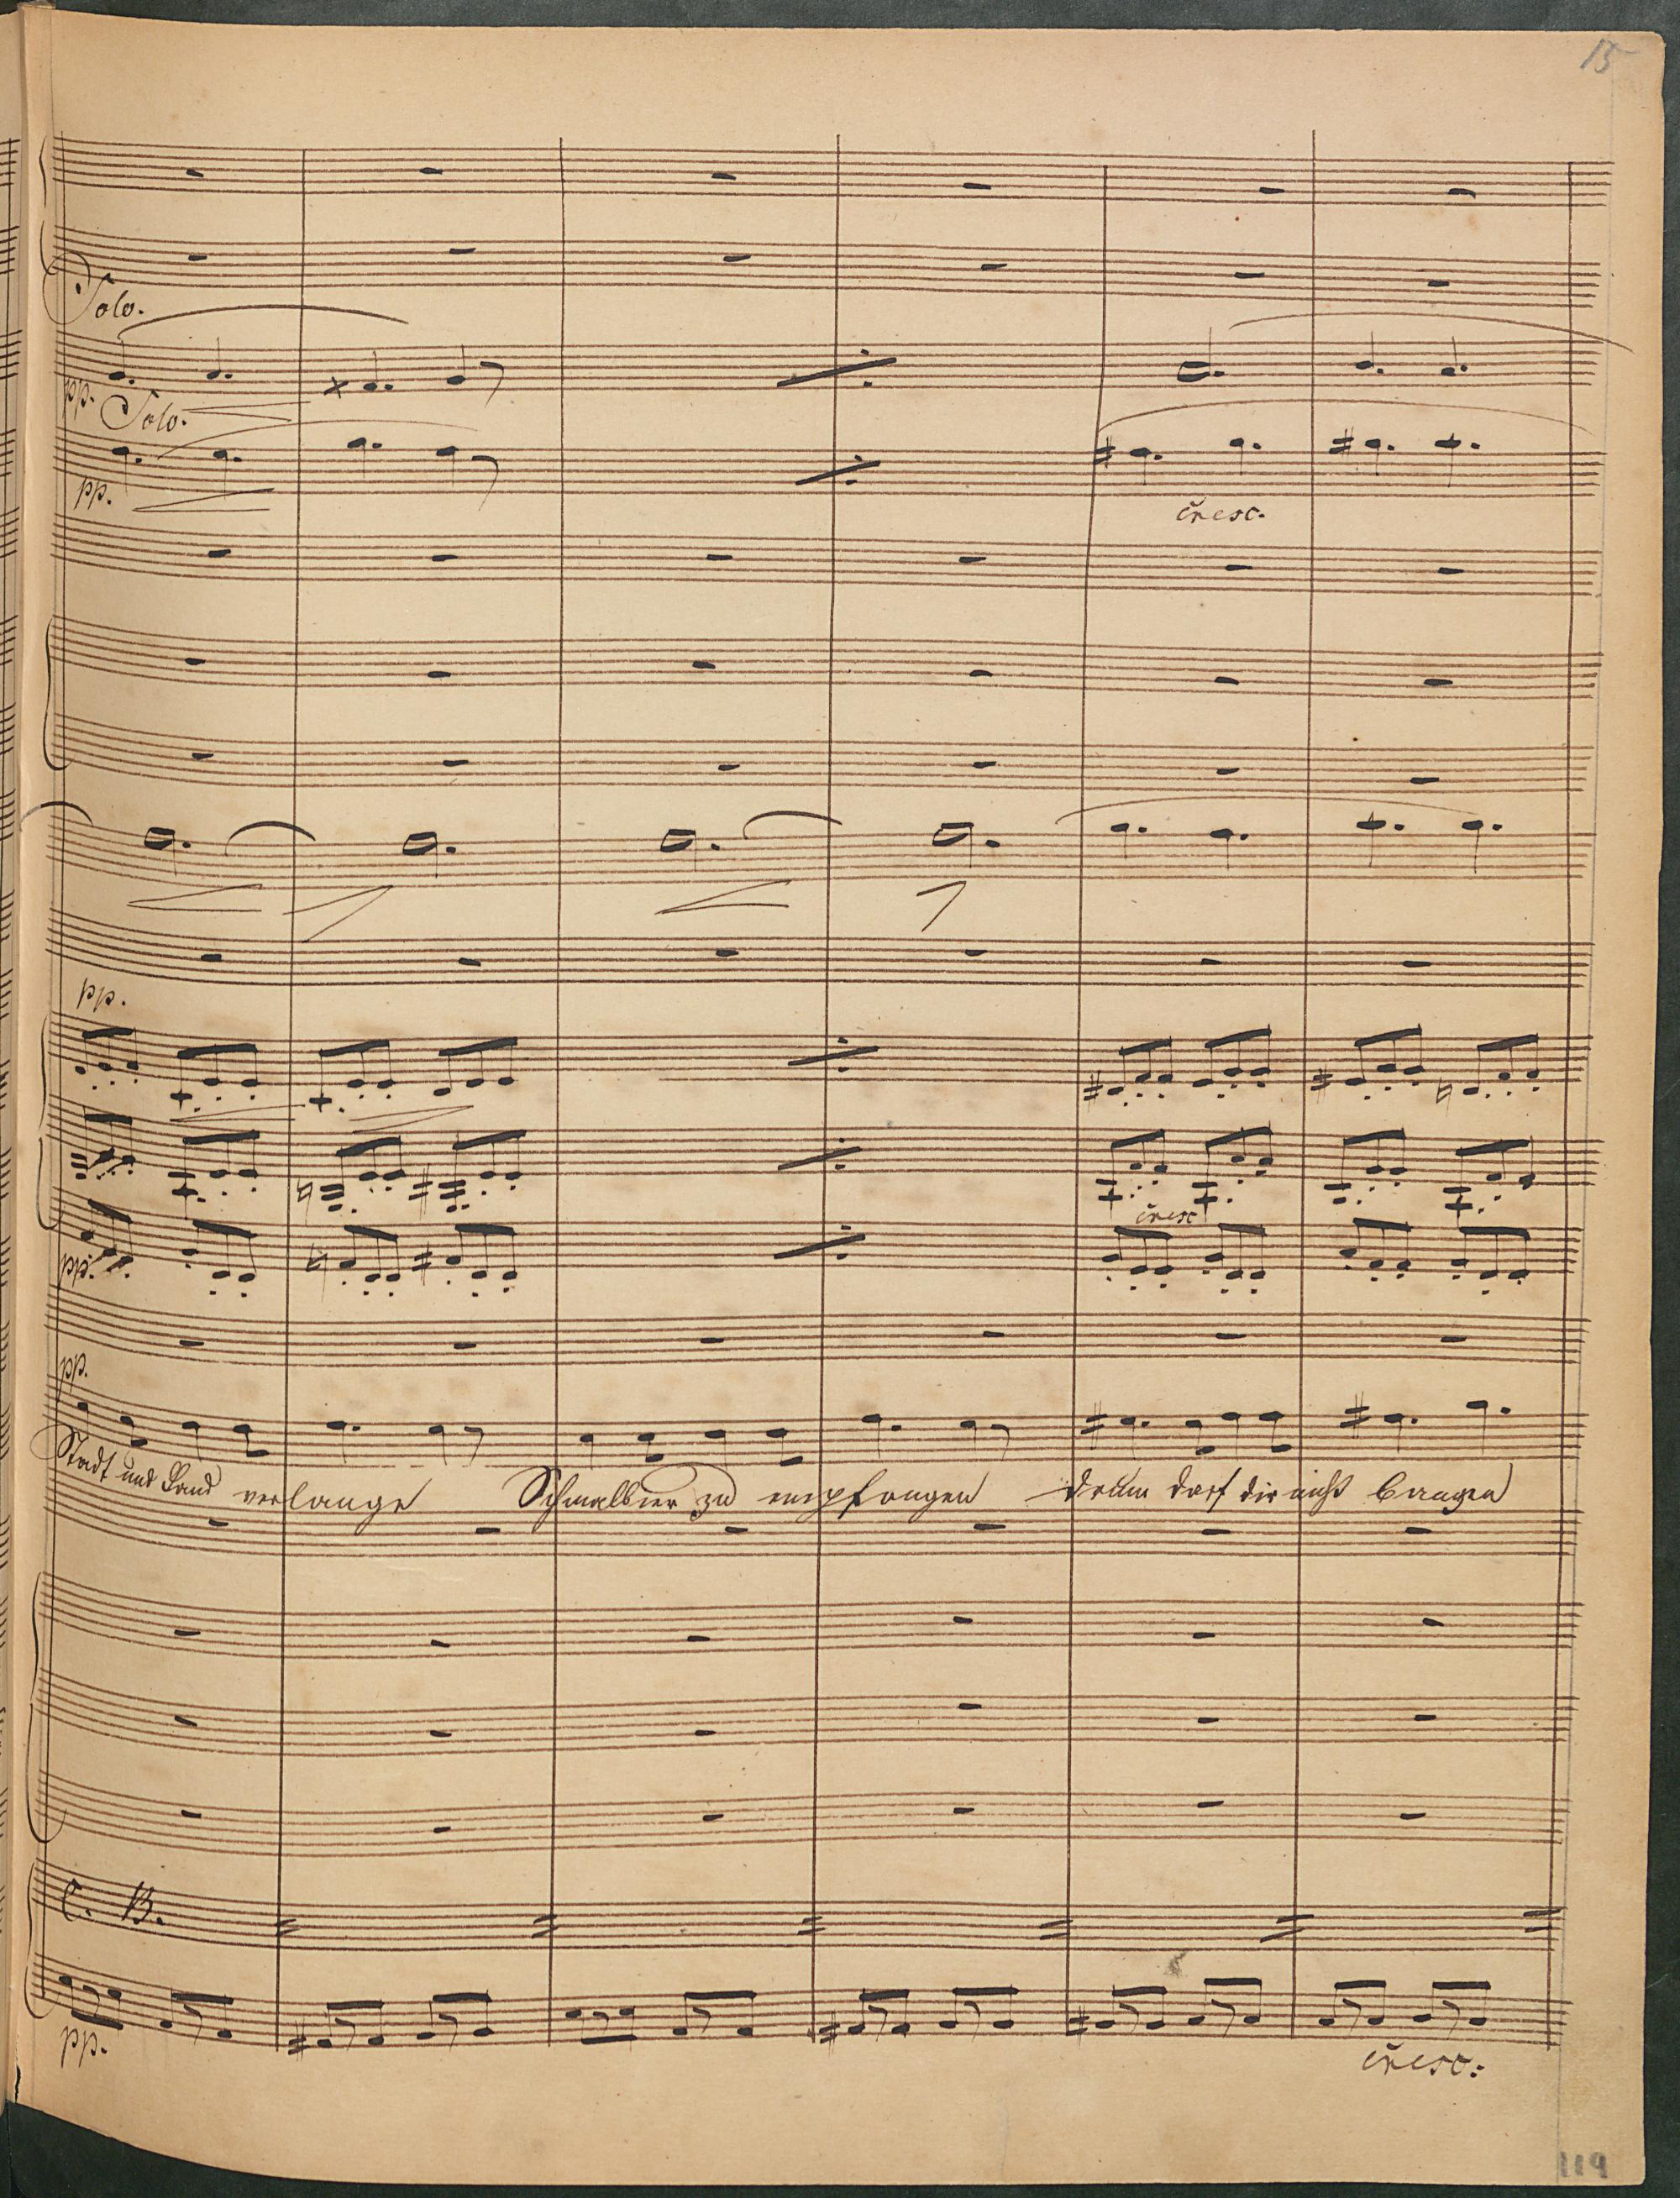 15
Solo.
pp.
Solo.
pp.
cresc.
pp.
cresc
pp.
pp.
Stadt und Land verlange Schmalbier zu empfangen drum darf dir nicht bangen
C. B.
pp.
cresc.
119